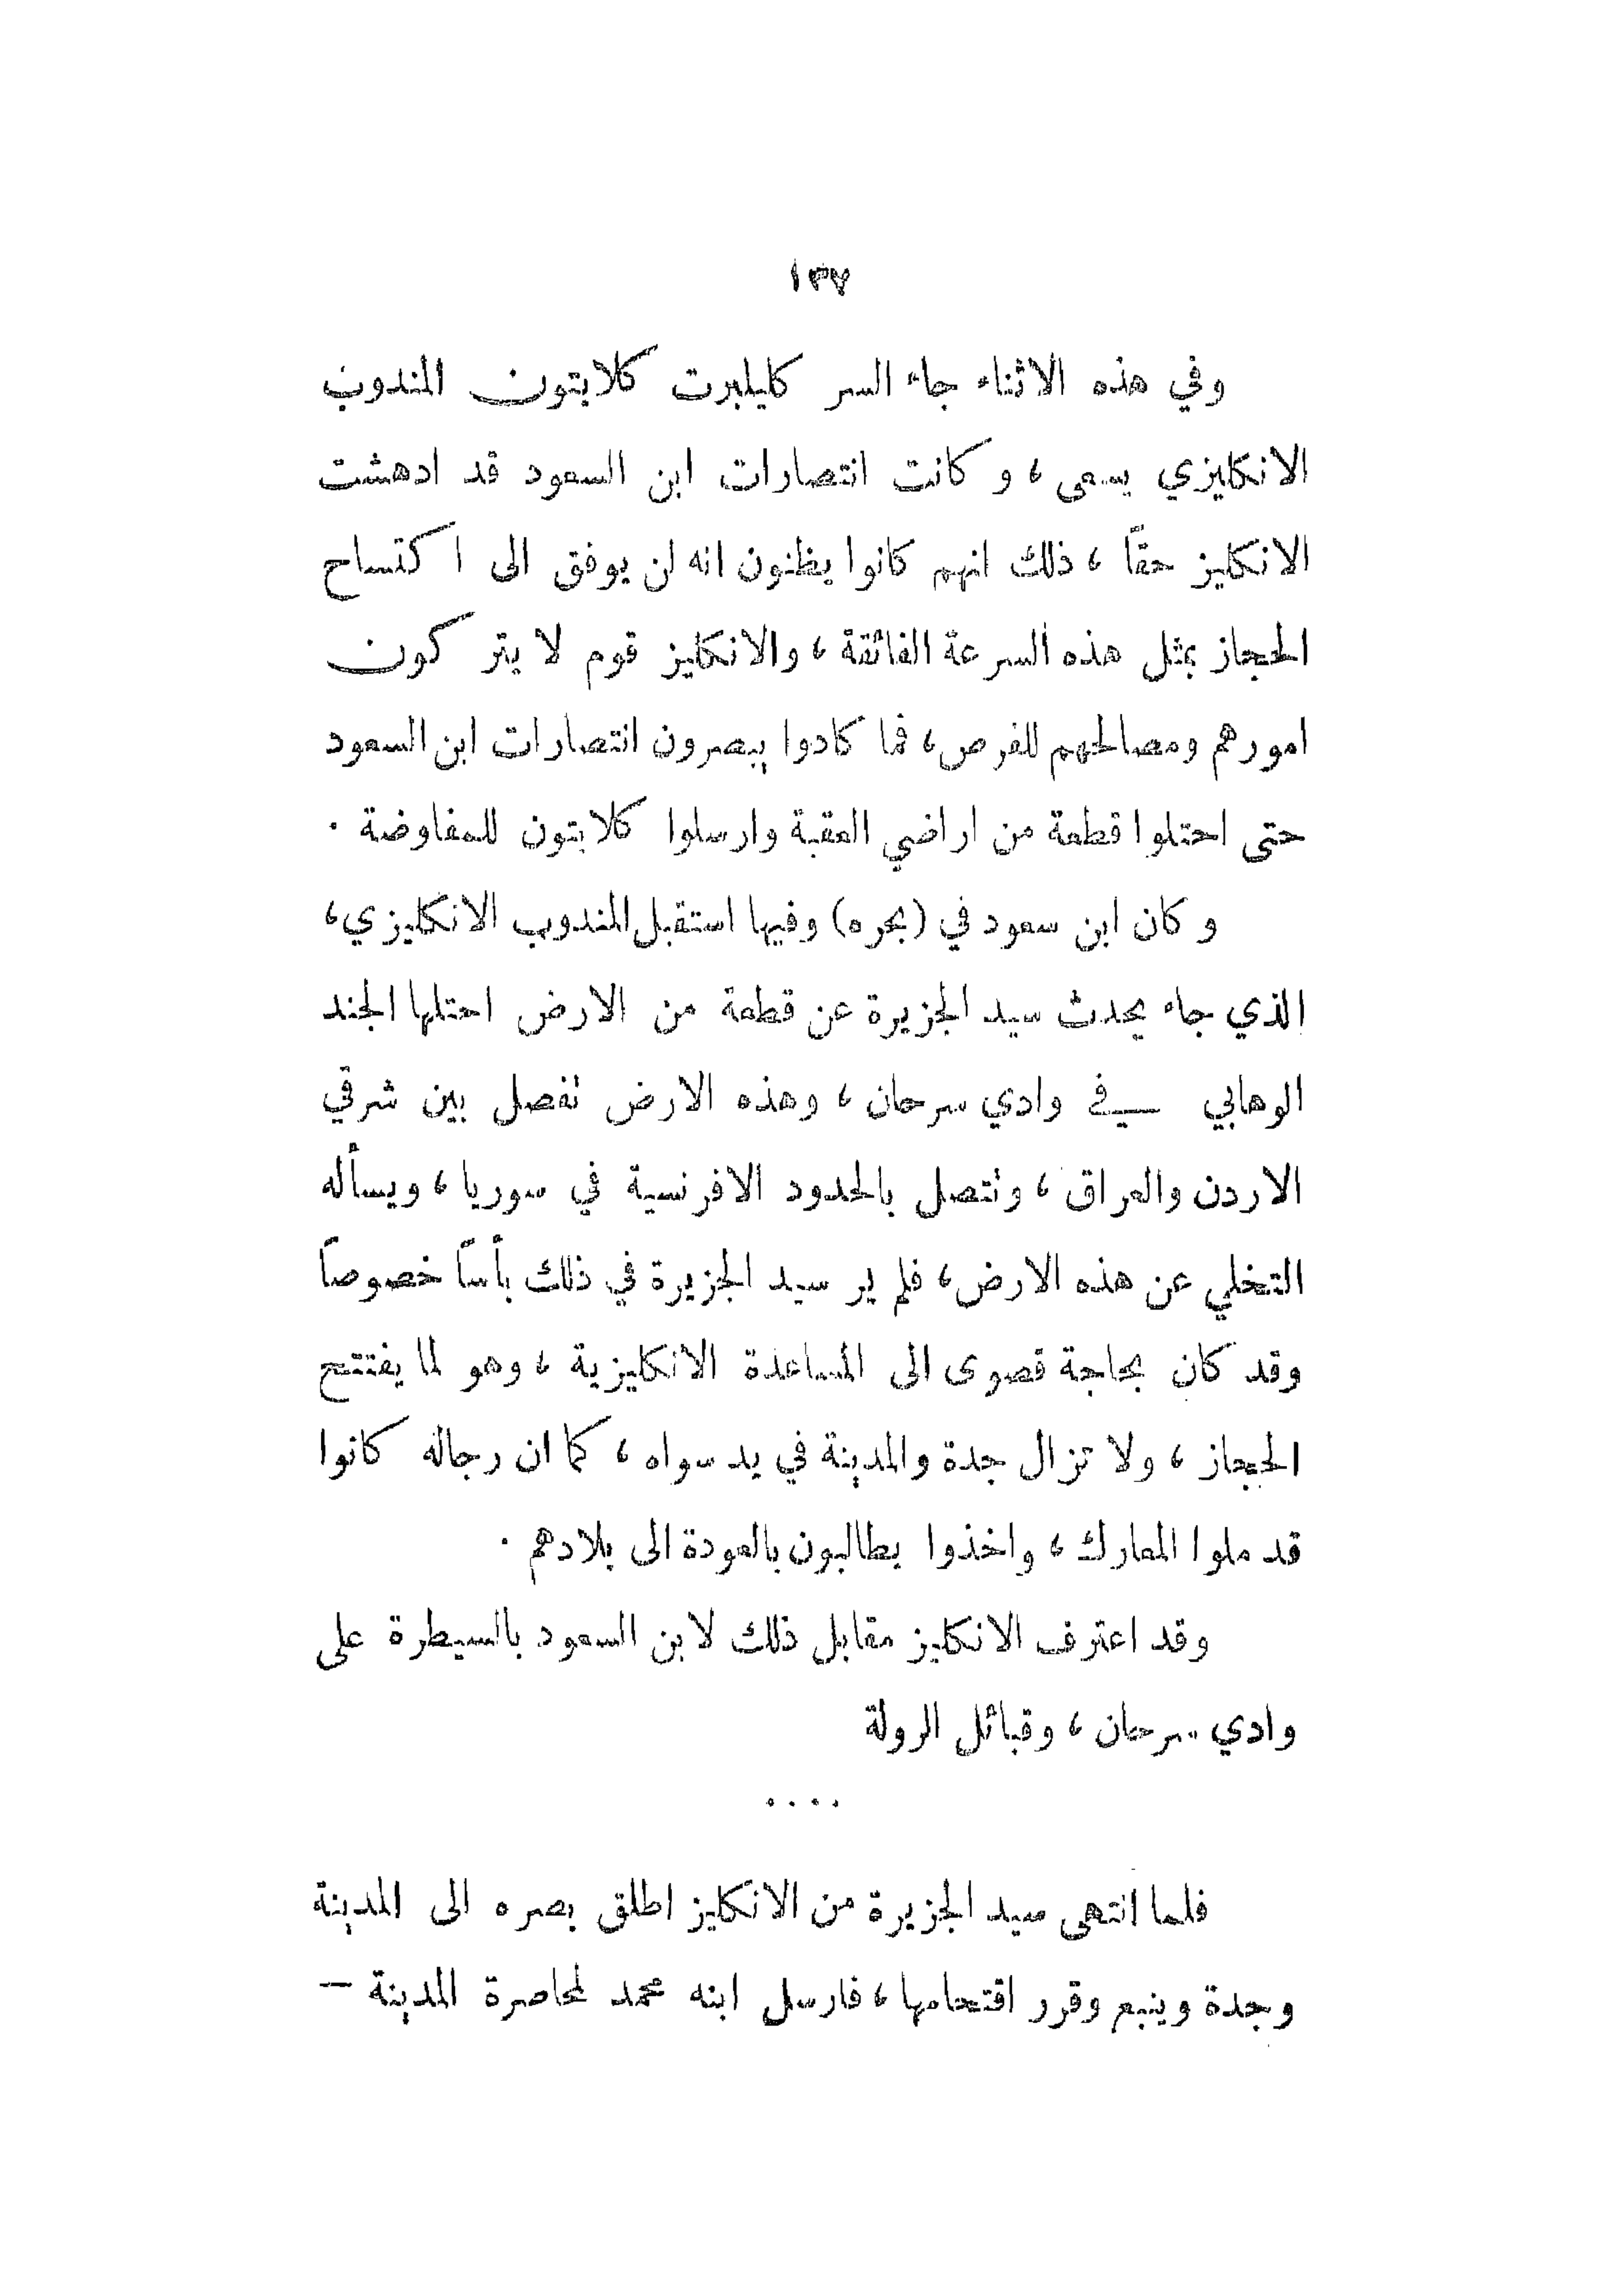 ١٣٧
وفي هذه الاثناء جاء السر كليلبرت كلايتون المندوب
الانكليزي يسعى ، وكانت انتصارات ابن السعود قد ادهشت
الانكليز حقاً ، ذلك انهم كانوا يظنون انه لن يوفق الى اكتساح
الحجاز بمثل هذه السرعة الفائقة ، والانكليز قوم لا يتركون
امورهم ومصالحهم للفرص ، فما كادوا يبصرون انتصارات ابن السعود
حتى احتلوا قطعة من اراضي العقبة وارسلوا كلايتون للمفاوضة .
وكان ابن سعود في (بحره) وفيها استقبل المندوب الانكليزي ،
الذي جاء يحدث سيد الجزيرة عن قطعة من الارض احتلها الجند
الوهابي في وادي سرحان ، وهذه الارض تفصل بين شرقي
الاردن والعراق ، وتتصل بالحدود الافرنسية في سوريا ، ويسأله
التخلي عن هذه الارض ، فلم ير سيد الجزيرة في ذلك بأساً خصوصاً
وقد كان بحاجة قصوى الى المساعدة الانكليزية ، وهو لما يفتتح
الحجاز ، ولا تزال جدة والمدينة في يد سواه ، كما ان رجاله كانوا
قد ملوا المعارك ، واخذوا يطالبون بالعودة الى بلادهم .
وقد اعترف الانكليز مقابل ذلك لابن السعود بالسيطرة على
وادي سرحان ، وقبائل الرولة
. . . .
فلما انتهى سيد الجزيرة من الانكليز اطلق بصره الى المدينة
وجدة وينبع وقرر اقتحامها ، فارسل ابنه محمد لمحاصرة المدينة —